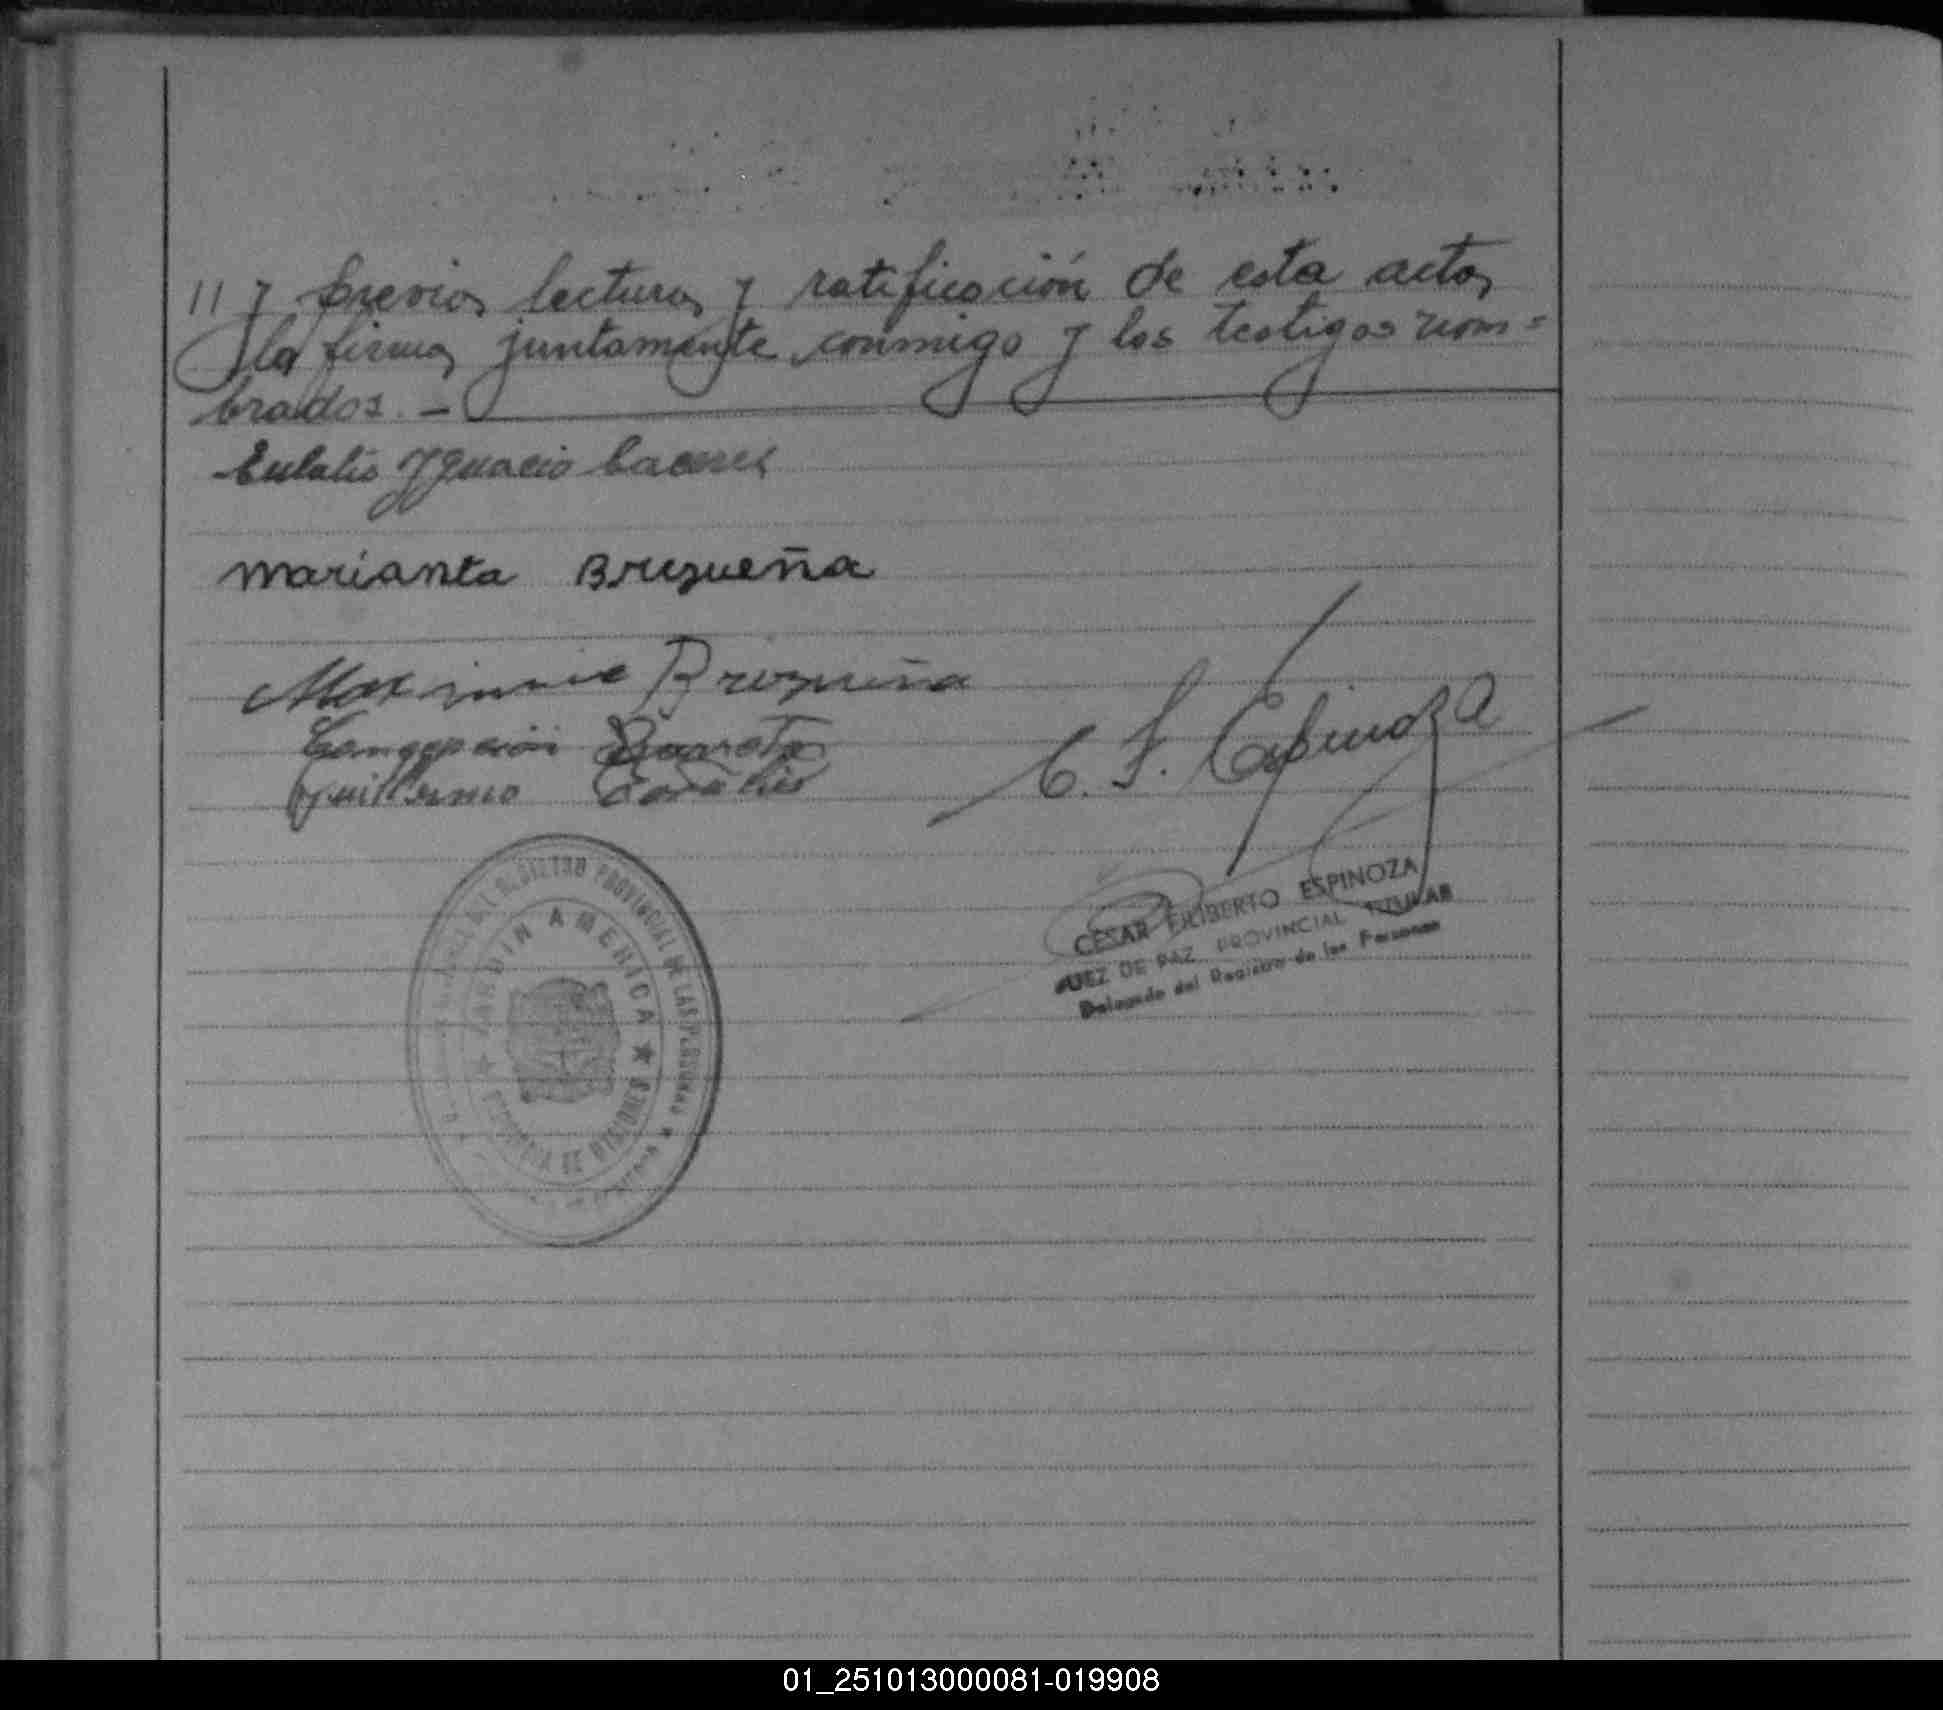 // y previa lectura y ratificación de esta acta,
la firma juntamente conmigo y los testigos nom=
brados. —
Eulalio Ygnacio Caceres
marianta Brizueña
Brizueña
Guillermo
C. F. Espinoza
CESAR FILIBERTO ESPINOZA
JUEZ DE PAZ PROVINCIAL TITULAR
Delegado del Registro de las Personas
REGISTRO PROVINCIAL DE LAS PERSONAS
JARDIN AMERICA
PROVINCIA DE MISIONES
01_251013000081-019908